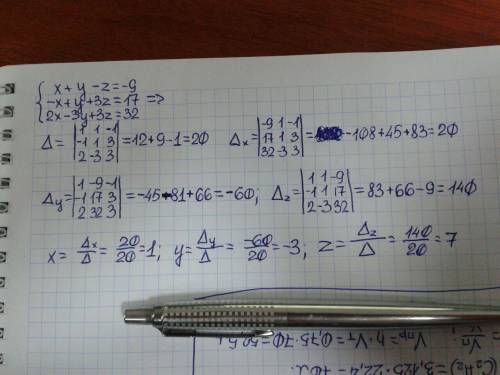 x + y - z = -9
-x + y + 3z = 17 =>
2x - 3y + 3z = 32
Δ = |1 1 -1; -1 1 3; 2 -3 3| = 12 + 9 - 1 = 20 Δx = |-9 1 -1; 17 1 3; 32 -3 3| = -108 + 45 + 83 = 20
Δy = |1 -9 -1; -1 17 3; 2 32 3| = -45 - 81 + 66 = -60; Δz = |1 1 -9; -1 1 17; 2 -3 32| = 83 + 66 - 9 = 140
x = Δx/Δ = 20/20 = 1; y = Δy/Δ = -60/20 = -3; z = Δz/Δ = 140/20 = 7
Vпр = h · Vт = 0,75 · 70 =
(C2H2) = 3,125 · 22,4 = 70 л.